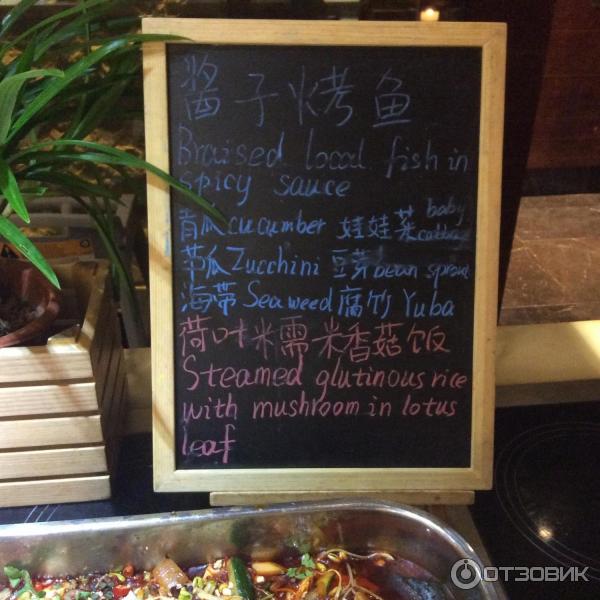 酱子烤鱼
Braised local fish in
spicy sauce
青瓜cucumber 娃娃菜baby
cabba
节瓜Zucchini 豆芽bean sprout
海带Seaweed腐竹Yuba
荷叶糯米香菇饭
Steamed glutinous rice
with mushroom in lotus
leaf
ОТЗОВИК